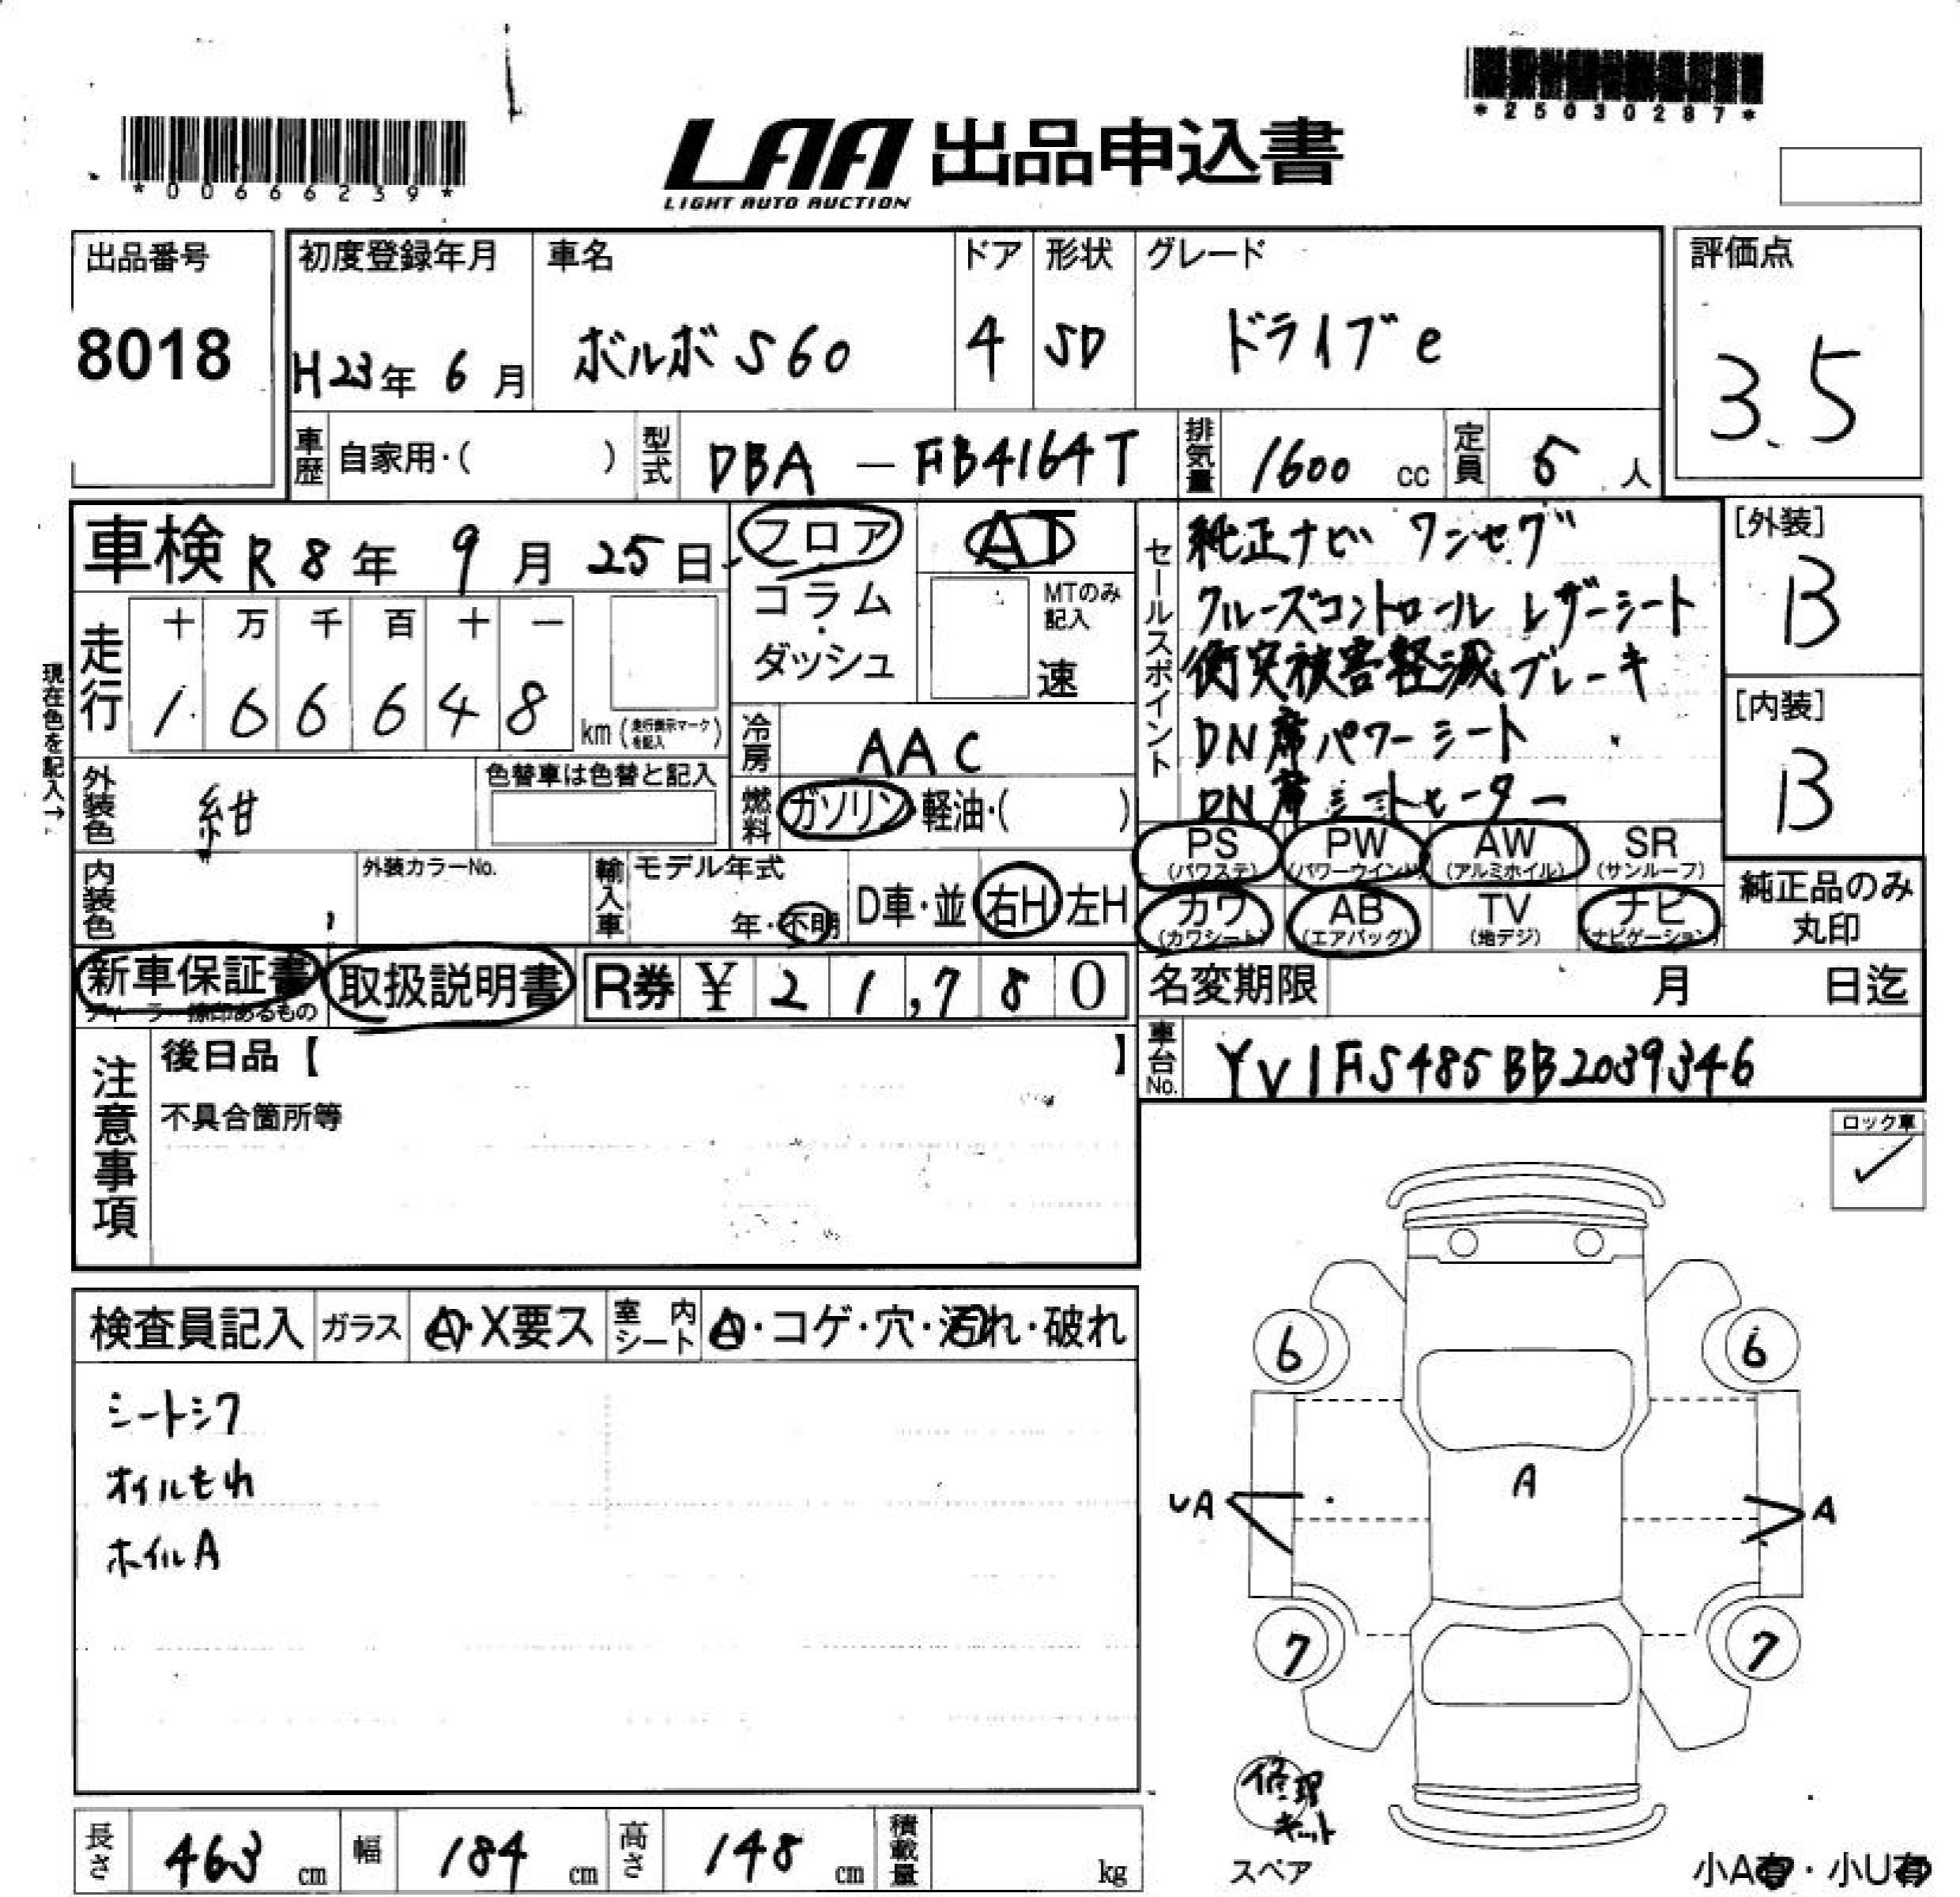 *00666239*
LAA 出品申込書
LIGHT AUTO AUCTION
*25030287*
出品番号
8018
初度登録年月
H23年 6月
車名
ボルボ S60
ドア
4
形状
SD
グレード
ドライブe
評価点
3.5
車歴 自家用・( )
型式 DBA - FB4164T
排気量 1600 cc
定員 5 人
車検 R8年 9月 25日
フロア
コラム
・
ダッシュ
AT
MTのみ記入
速
現在色を記入→
走行
十 万 千 百 十 一
1 6 6 6 4 8
km (走行表示マークを記入)
冷房 AAC
外装色 紺
色替車は色替と記入
燃料 ガソリン・軽油・( )
内装色
外装カラーNo.
輸入車 モデル年式
年・不明
D車・並 右H 左H
新車保証書
ディーラー捺印あるもの
取扱説明書
R券 ¥ 21,780
セールスポイント
純正ナビ ワンセグ
クルーズコントロール レザーシート
衝突被害軽減ブレーキ
DN席パワーシート
DN席シートヒーター
[外装]
B
[内装]
B
PS
(パワステ)
PW
(パワーウインド)
AW
(アルミホイル)
SR
(サンルーフ)
カワ
(カワシート)
AB
(エアバッグ)
TV
(地デジ)
ナビ
(ナビゲーション)
純正品のみ
丸印
名変期限 月 日迄
車台No. YV1FS485BB2039346
注意事項
後日品【 】
不具合箇所等
ロック車
✓
検査員記入 ガラス A・X要ス 室内シート A・コゲ・穴・汚れ・破れ
シートシワ
オイルもれ
ホイルA
6
6
UA
A
A
7
7
修理
キット
スペア
小A有・小U有
長さ 463 cm
幅 184 cm
高さ 148 cm
積載量 kg